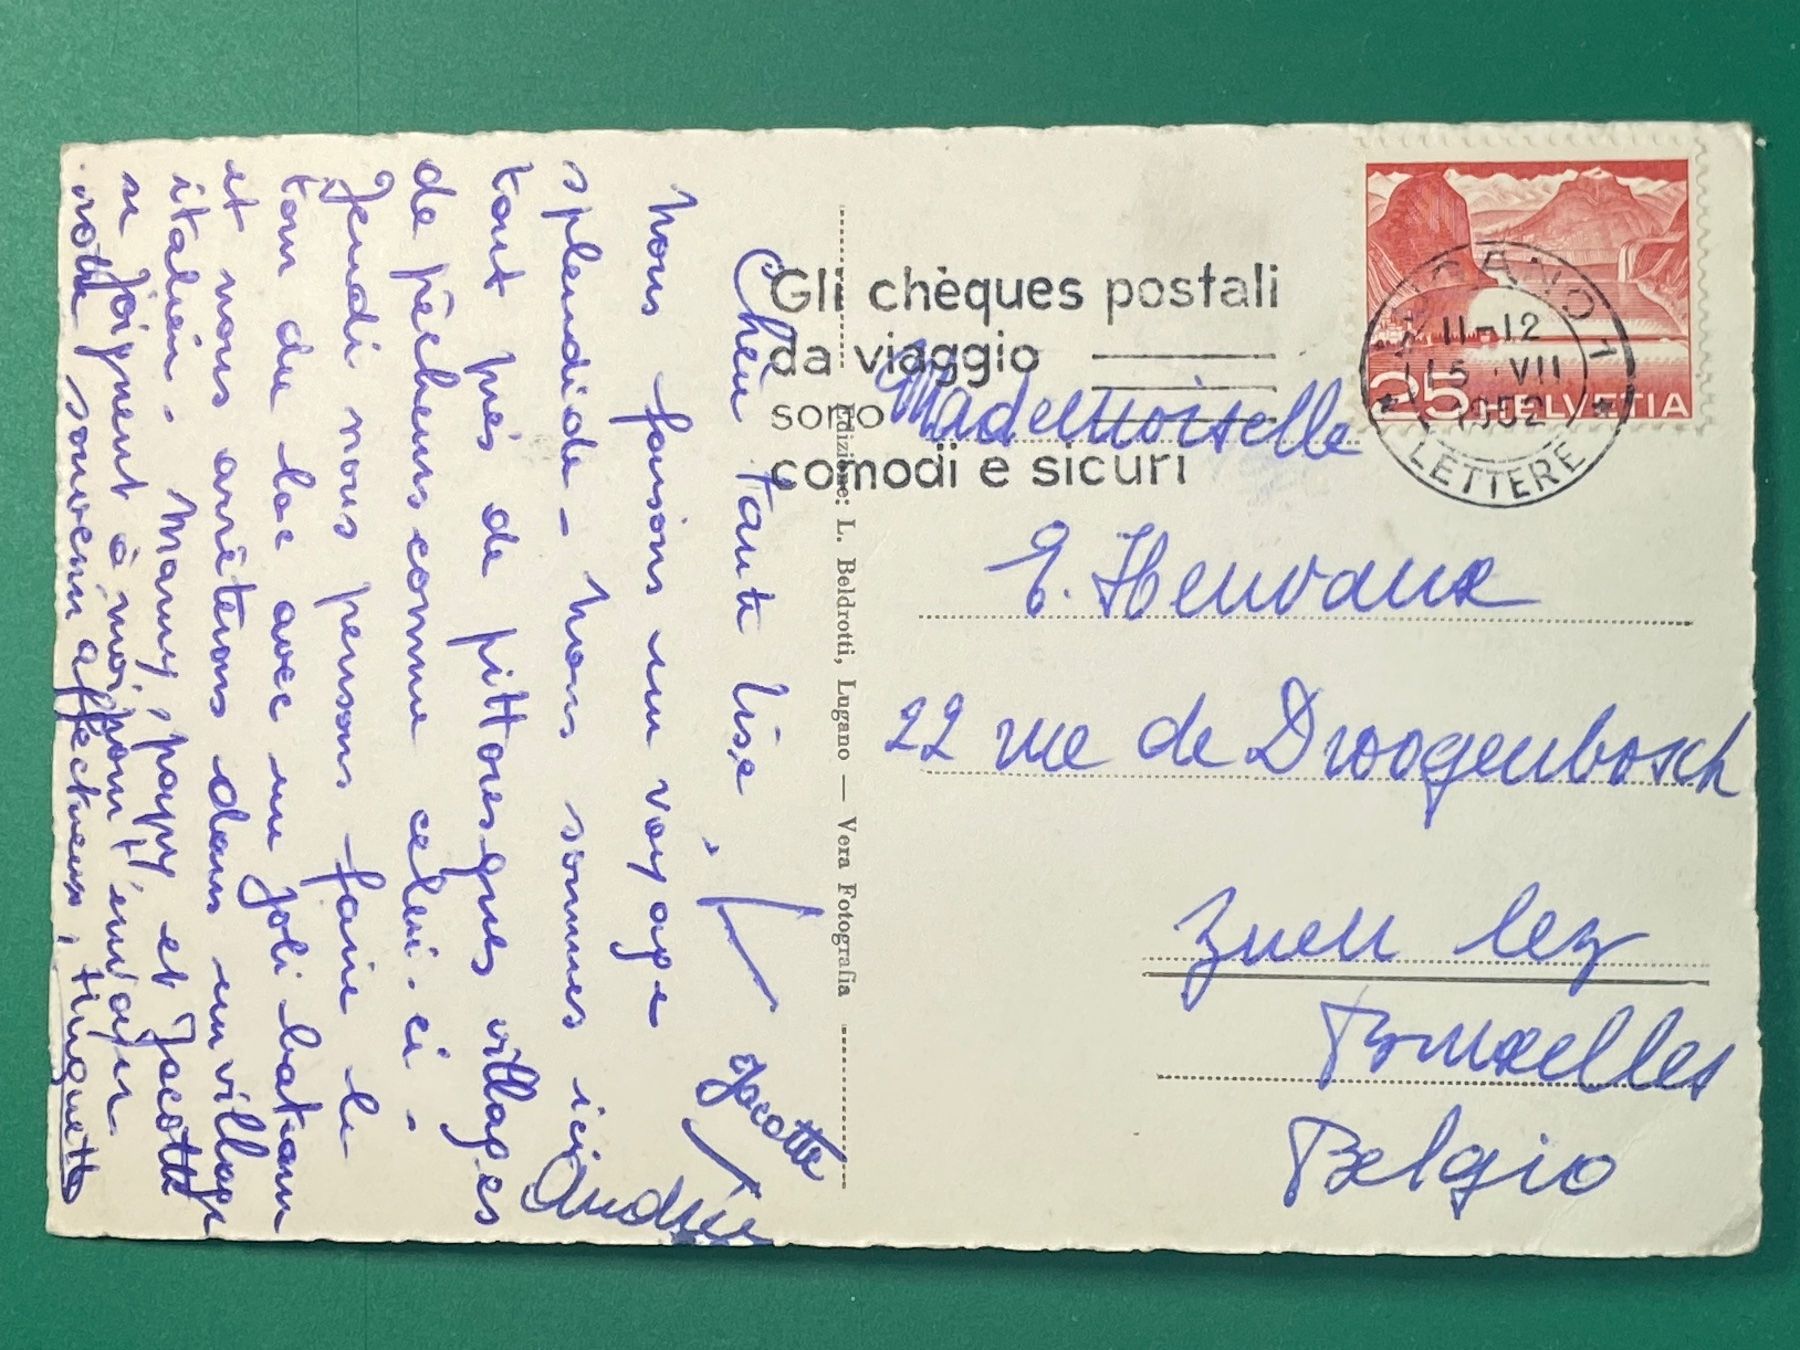 Chère Tante Lise,
Nous faisons un voyage
splendide - Nous sommes ici
tout près de pittoresques villages
de pêcheurs comme celui-ci -
Jeudi nous pensons faire le
tour du lac avec un joli bateau
et nous arrêterons dans un village
italien. Mamy, papy et Jacotte
se joignent à moi pour t'envoyer
notre souvenir affectueux,
Jacotte
Gli chèques postali
da viaggio
sono
comodi e sicuri
LUGANO 1
11-12
15. VII
1952
LETTERE
25 HELVETIA
Edizione: L. Beldrotti, Lugano — Vera Fotografia
Mademoiselle
E. Henvaux
22 rue de Droogenbosch
Zuen lez
Bruxelles
Belgio